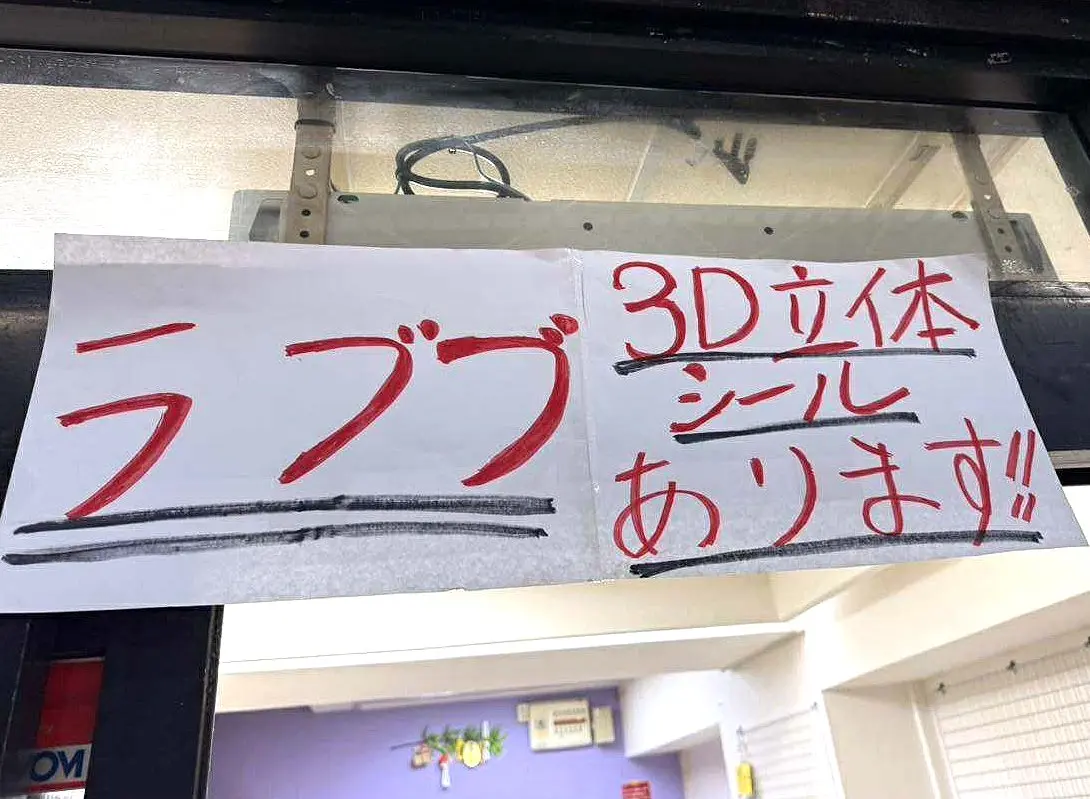 ラブブ
3D立体
シール
あります!!
OM